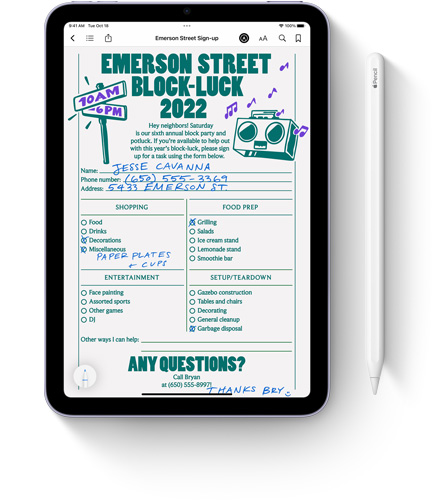 9:41 AM Tue Oct 18
100%
Emerson Street Sign-up
AA
EMERSON STREET
BLOCK-LUCK
2022
10AM
-6PM
Hey neighbors! Saturday
is our sixth annual block party and
potluck. If you're available to help out
with this year's block-luck, please sign
up for a task using the form below.
Name: JESSE CAVANNA
Phone number: (650) 555-3369
Address: 5433 EMERSON ST.
SHOPPING
Food
Drinks
Decorations
Miscellaneous
PAPER PLATES
+ CUPS
FOOD PREP
Grilling
Salads
Ice cream stand
Lemonade stand
Smoothie bar
ENTERTAINMENT
Face painting
Assorted sports
Other games
DJ
SETUP/TEARDOWN
Gazebo construction
Tables and chairs
Decorating
General cleanup
Garbage disposal
Other ways I can help:
ANY QUESTIONS?
Call Bryan
at (650) 555-8997!
THANKS BRY
Pencil